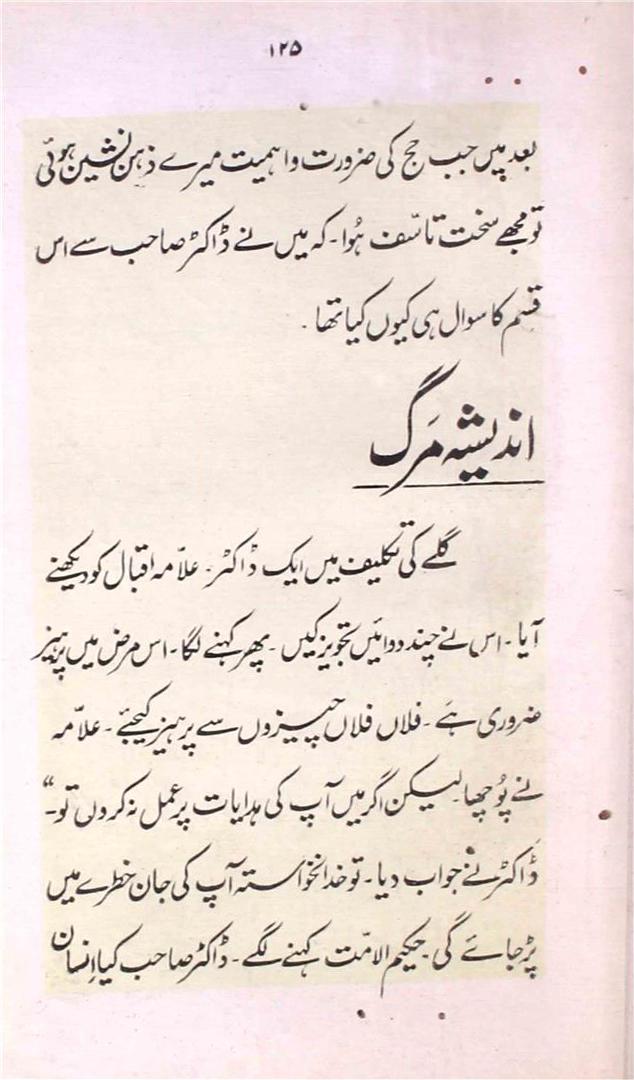 ۱۲۵
بعد میں جب حج کی ضرورت و اہمیت میرے ذہن نشین ہوئی
تو مجھے سخت تاسّف ہُوا۔ کہ میں نے ڈاکٹر صاحب سے اس
قسم کا سوال ہی کیوں کیا تھا۔
اندیشہ مَرگ
گلے کی تکلیف میں ایک ڈاکٹر۔ علاّمہ اقبال کو دیکھنے
آیا۔ اس نے چند دوائیں تجویز کیں۔ پھر کہنے لگا۔ اس مرض میں پرہیز
ضروری ہَے۔ فلاں فلاں چیزوں سے پرہیز کیجئے۔ علاّمہ
نے پُوچھا۔ لیکن اگر میں آپ کی ہدایات پر عمل نہ کروں تو۔"
ڈاکٹر نے جواب دیا۔ تو خدانخواستہ آپ کی جان خطرے میں
پڑ جائے گی۔ حکیم الامّت کہنے لگے۔ ڈاکٹر صاحب کیا اِنسان